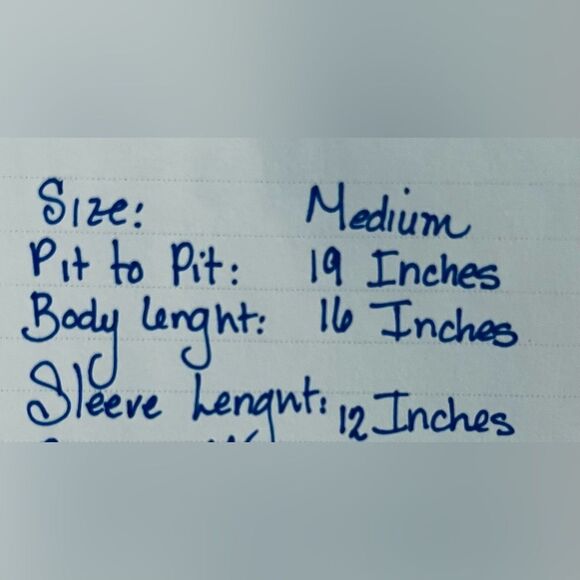 Size: Medium
Pit to Pit: 19 Inches
Body lenght: 16 Inches
Sleeve Lenght: 12 Inches